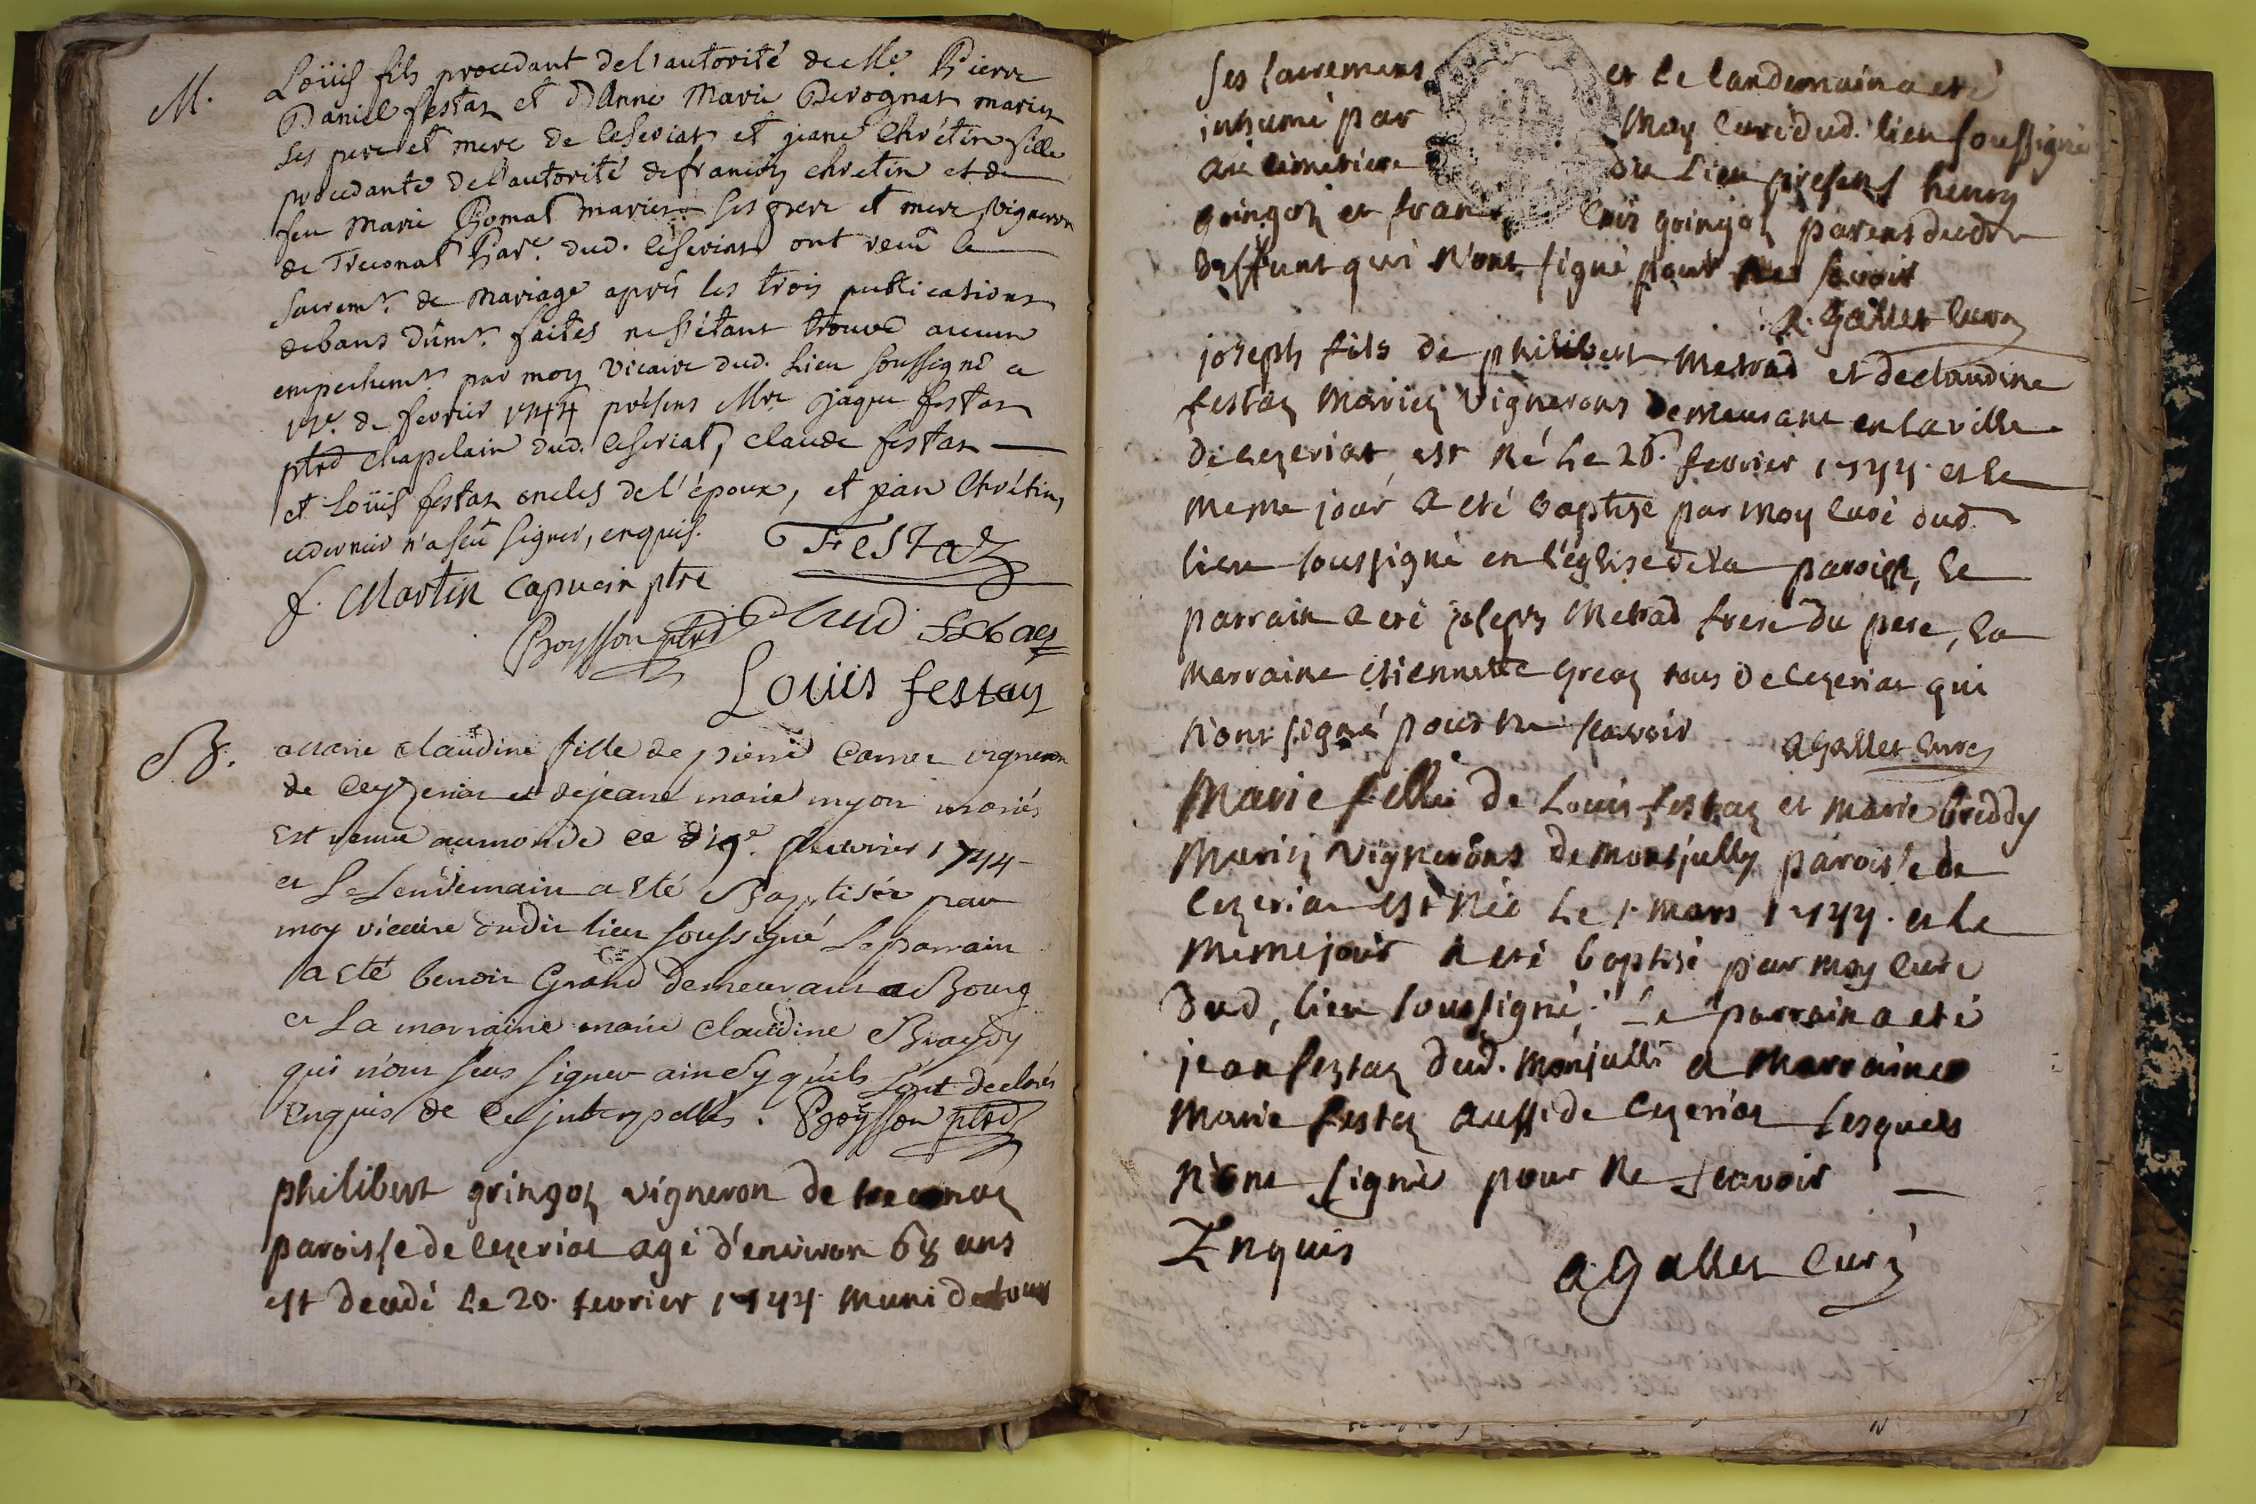 M.
Loüis fils procedant de l'autorité de Me. Pierre
Daniel festaz et d'Anne Marie Perognat mariez
ses pere et mere de Ceseriat et jeane Chrétin fille
procedante de l'autorité de françois chretin et de
feu Marie Romat mariez ses pere et mere vigneron
de Treconat Par.e dud. Ceseriat ont receu le
Sacrem.t de Mariage aprés les trois publications
de bans düm.t faites ne s'étant trouvé aucun
empechem.t par moy vicaire dud. Lieu soussigné ce
de fevrier 1744 présens Mre jaque festaz
ptre chapelain dud. Ceseriat, claude festaz
et Loüis festaz oncles de l'époux, et jean Chrétin,
ce dernier n'a sçeu signer, enquis.
Festaz
f. Martin capucin ptre
Boysson ptre
Louis festaz
B.
Marie claudine fille de pierre vigneron
de Ceyzeriat et de jeane marie myon mariés
est venue au monde ce 19e. fevrier 1744
et Le Lendemain a été Baptisée par
moy vicaire dudit lieu soussigné Le parrain
a été benoit Grand demeurant a Bourg
et La marraine marie claudine
qui n'ont sceu signer ainsy qu'ils l'ont declaré
enquis de ce interpellés. Boysson ptre
philibert gringoz vigneron de treconaz
paroisse de cezeriat agé d'environ 68 ans
est decedé le 20. fevrier 1744 muni de tous
ses sacremens et le landemain a eté
inhumé par moy curé dud. lieu soussigné
au cimetiere du lieu presens henry
gringoz et francois gringoz parens dudit
deffunt qui n'ont signé pour ne scavoir
a. Gallet curé
joseph fils de philibert Metrad et de claudine
festaz mariez vignerons demeurant en la ville
de cezeriat est né le 26. fevrier 1744. et le
meme jour a eté baptise par moy curé dud.
lieu soussigné en l'église de la paroisse, le
parrain a eté joseph Metrad frere du pere, la
marraine etiennette greaz tous de cezeriat qui
n'ont signé pour ne scavoir
a Gallet curé
Marie fille de Louis festaz et marie breddy
Mariez vignerons de montjully paroisse de
cezeriat est née le 1. mars 1744. et le
meme jour a eté baptisé par moy curé
dud, lieu soussigné; Le parrain a eté
jean festaz dud. Monjulli a marraine
Marie festaz aussi de cezeriat lesquels
n'ont signé pour ne scavoir
Enquis
a Gallet curé